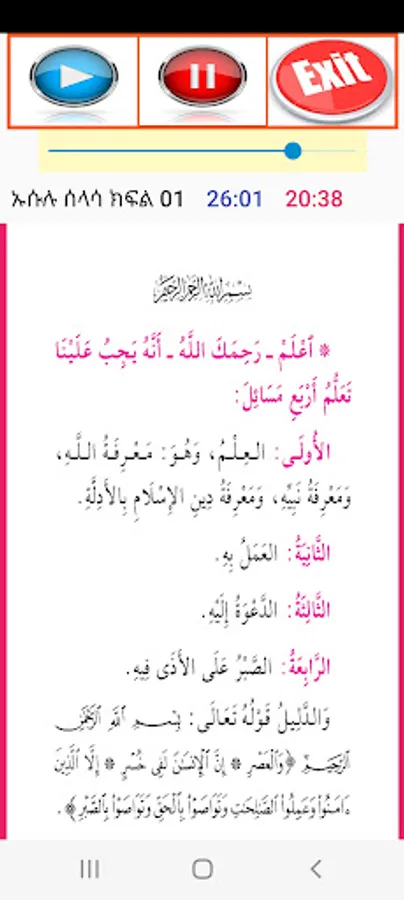 Exit
ኡሱሉ ሰላሳ ክፍል 01 26:01 20:38
بِسْمِ اللَّهِ الرَّحْمَٰنِ الرَّحِيمِ
* ٱعْلَمْ ـ رَحِمَكَ اللَّهُ ـ أَنَّهُ يَجِبُ عَلَيْنَا
تَعَلُّمُ أَرْبَعِ مَسَائِلَ:
الأُولَى: العِلْمُ، وَهُوَ: مَعْرِفَةُ اللَّهِ،
وَمَعْرِفَةُ نَبِيِّهِ، وَمَعْرِفَةُ دِينِ الإِسْلَامِ بِالأَدِلَّةِ.
الثَّانِيَةُ: العَمَلُ بِهِ.
الثَّالِثَةُ: الدَّعْوَةُ إِلَيْهِ.
الرَّابِعَةُ: الصَّبْرُ عَلَى الأَذَى فِيهِ.
وَالدَّلِيلُ قَوْلُهُ تَعَالَى: بِسْمِ اللَّهِ الرَّحْمَٰنِ
الرَّحِيمِ ﴿وَٱلْعَصْرِ * إِنَّ ٱلْإِنسَٰنَ لَفِى خُسْرٍ * إِلَّا ٱلَّذِينَ
ءَامَنُوا۟ وَعَمِلُوا۟ ٱلصَّٰلِحَٰتِ وَتَوَاصَوْا۟ بِٱلْحَقِّ وَتَوَاصَوْا۟ بِٱلصَّبْرِ﴾.